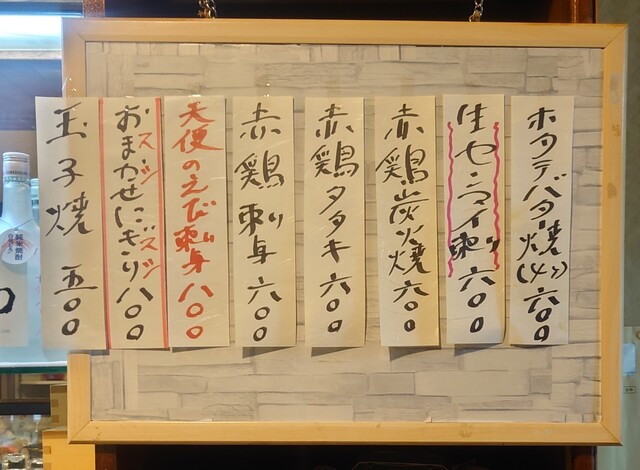 ホタテバター焼(4ケ) 六〇〇
生センマイ刺し 六〇〇
赤鶏炭火焼 六〇〇
赤鶏タタキ 六〇〇
赤鶏刺身 六〇〇
天使のえび刺身 八〇〇
おまかせにぎり 八〇〇
スシ
スシ
玉子焼 五〇〇
純米焼酎